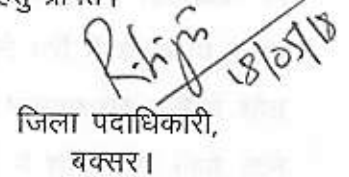 प्राप्ति।
18/05/18
जिला पदाधिकारी,
बक्सर।